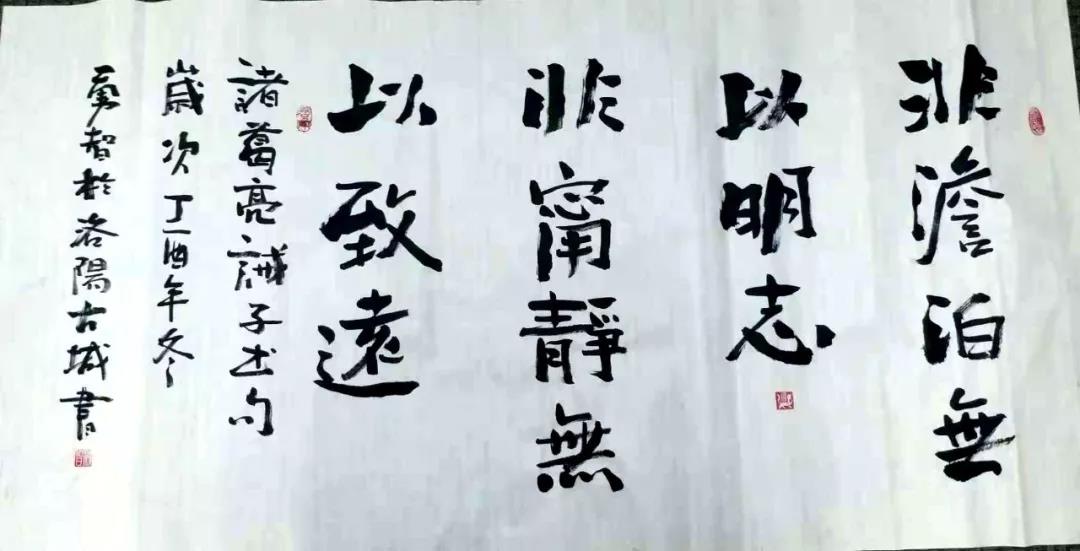 非澹泊無
以明志
非甯靜無
以致遠
諸葛亮誡子书句
歲次丁酉年冬
勇智於洛陽古城書